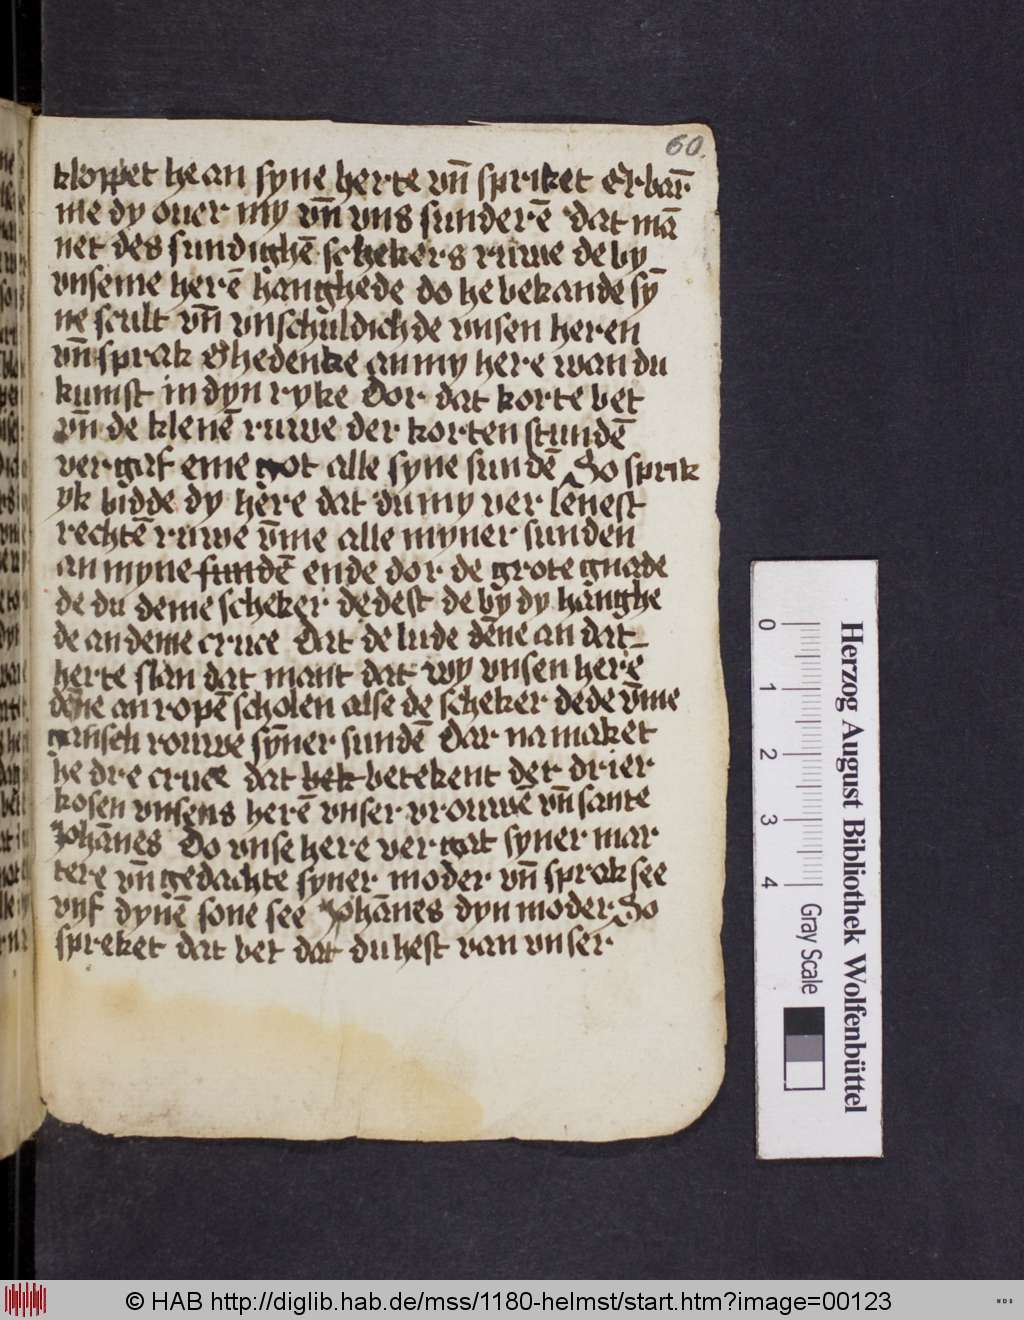 60.
kloppet he an syne herte vn̄ spriket Erbar̄
me dy ouer my vn̄ vns sunderē dat mā
net des sundighē schekers ruwe de by
vnseme herē hanghede do he bekande sȳ
ne scult vn̄ vnschuldichde vnsen heren
vn̄ sprak Ghedenke an my here wan du
kumst in dyn ryke Dor dat korte bet
vn̄ de klenē ruwe der korten stundē
vergaf eme got alle syne sundē So sprik
yk bidde dy here dat du my verlenest
rechtē ruwe v̄me alle myner sunden
an myne sundē ende dor de grote gnade
de du deme scheker dedest de by dy hanghe
de an deme cruce Dat de lude dēne an dat
herte slan dat mant dat wy vnsen herē
dēne an ropē scholen alse de scheker dede v̄me
gansen rouwe syner sundē Dar na maket
he dre cruce dat bek betekent der drier
kosen vnsens herē vnser vrouwē vn̄ sante
Johānes Do vnse here vergat syner mar
tere vn̄ gedachte syner moder vn̄ sprak see
wyf dynē sone see Johānes dyn moder So
spreket dat bet dat du hest van vnser
Herzog August Bibliothek Wolfenbüttel
0 1 2 3 4
Gray Scale
© HAB http://diglib.hab.de/mss/1180-helmst/start.htm?image=00123